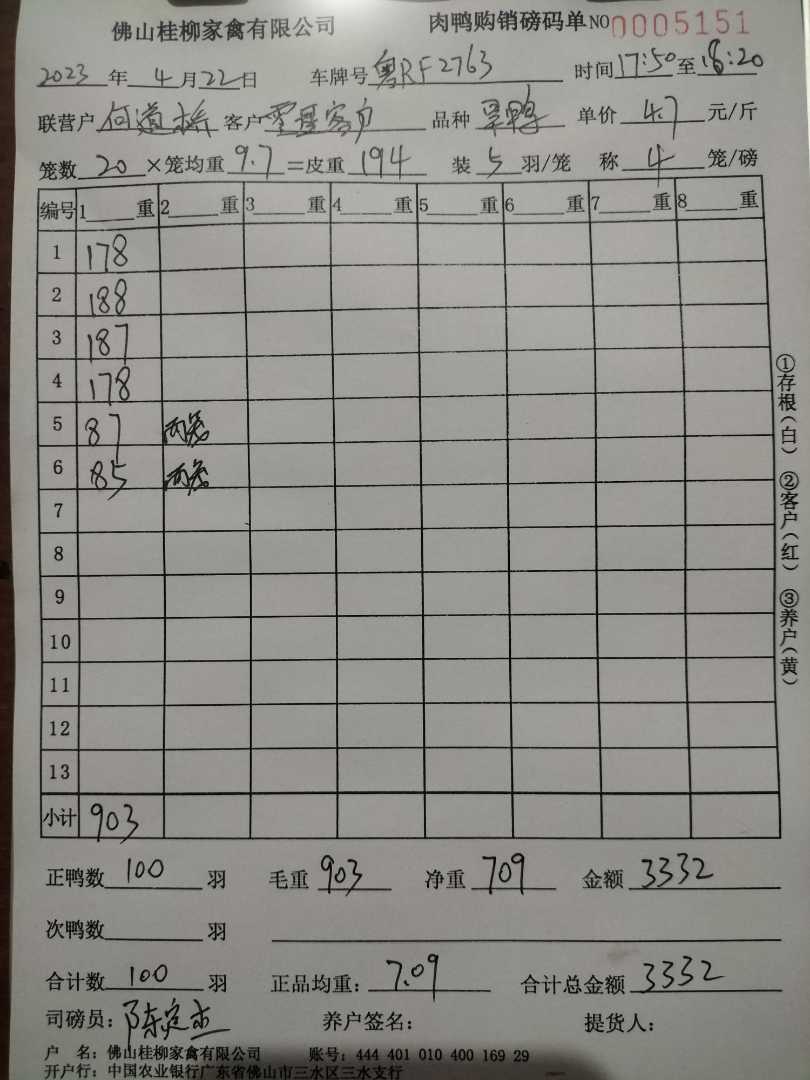 佛山桂柳家禽有限公司 肉鸭购销磅码单 NO 0005151
2023年4月22日 车牌号 粤RF2763 时间 17:50 至 18:20
联营户 何道 客户 零星客户 品种 旱鸭 单价 4.7 元/斤
笼数 20 ×笼均重 9.7 =皮重 194 装 5 羽/笼 称 4 笼/磅
编号 1 重 2 重 3 重 4 重 5 重 6 重 7 重 8 重
1 178
2 188
3 187
4 178
5 87 两笼
6 85 两笼
7
8
9
10
11
12
13
小计 903
正鸭数 100 羽 毛重 903 净重 709 金额 3332
次鸭数 羽
合计数 100 羽 正品均重: 7.09 合计总金额 3332
司磅员: 陈定杰 养户签名: 提货人:
户 名: 佛山桂柳家禽有限公司 账号: 444 401 010 400 169 29
开户行: 中国农业银行广东省佛山市三水区三水支行
①存根(白) ②客户(红) ③养户(黄)